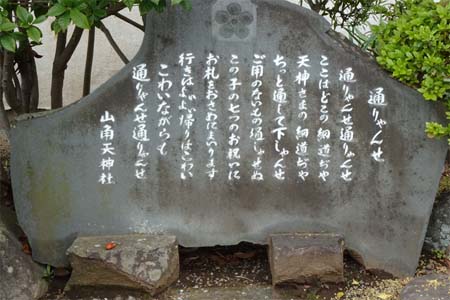 通りゃんせ
通りゃんせ通りゃんせ
ここはどこの細道ぢや
天神さまの細道ぢや
ちっと通して下しゃんせ
ご用のないもの通しゃせぬ
この子の七つのお祝いに
お札をおさめにまいります
行きはよいよい帰りはこわい
こわいながらも
通りゃんせ通りゃんせ